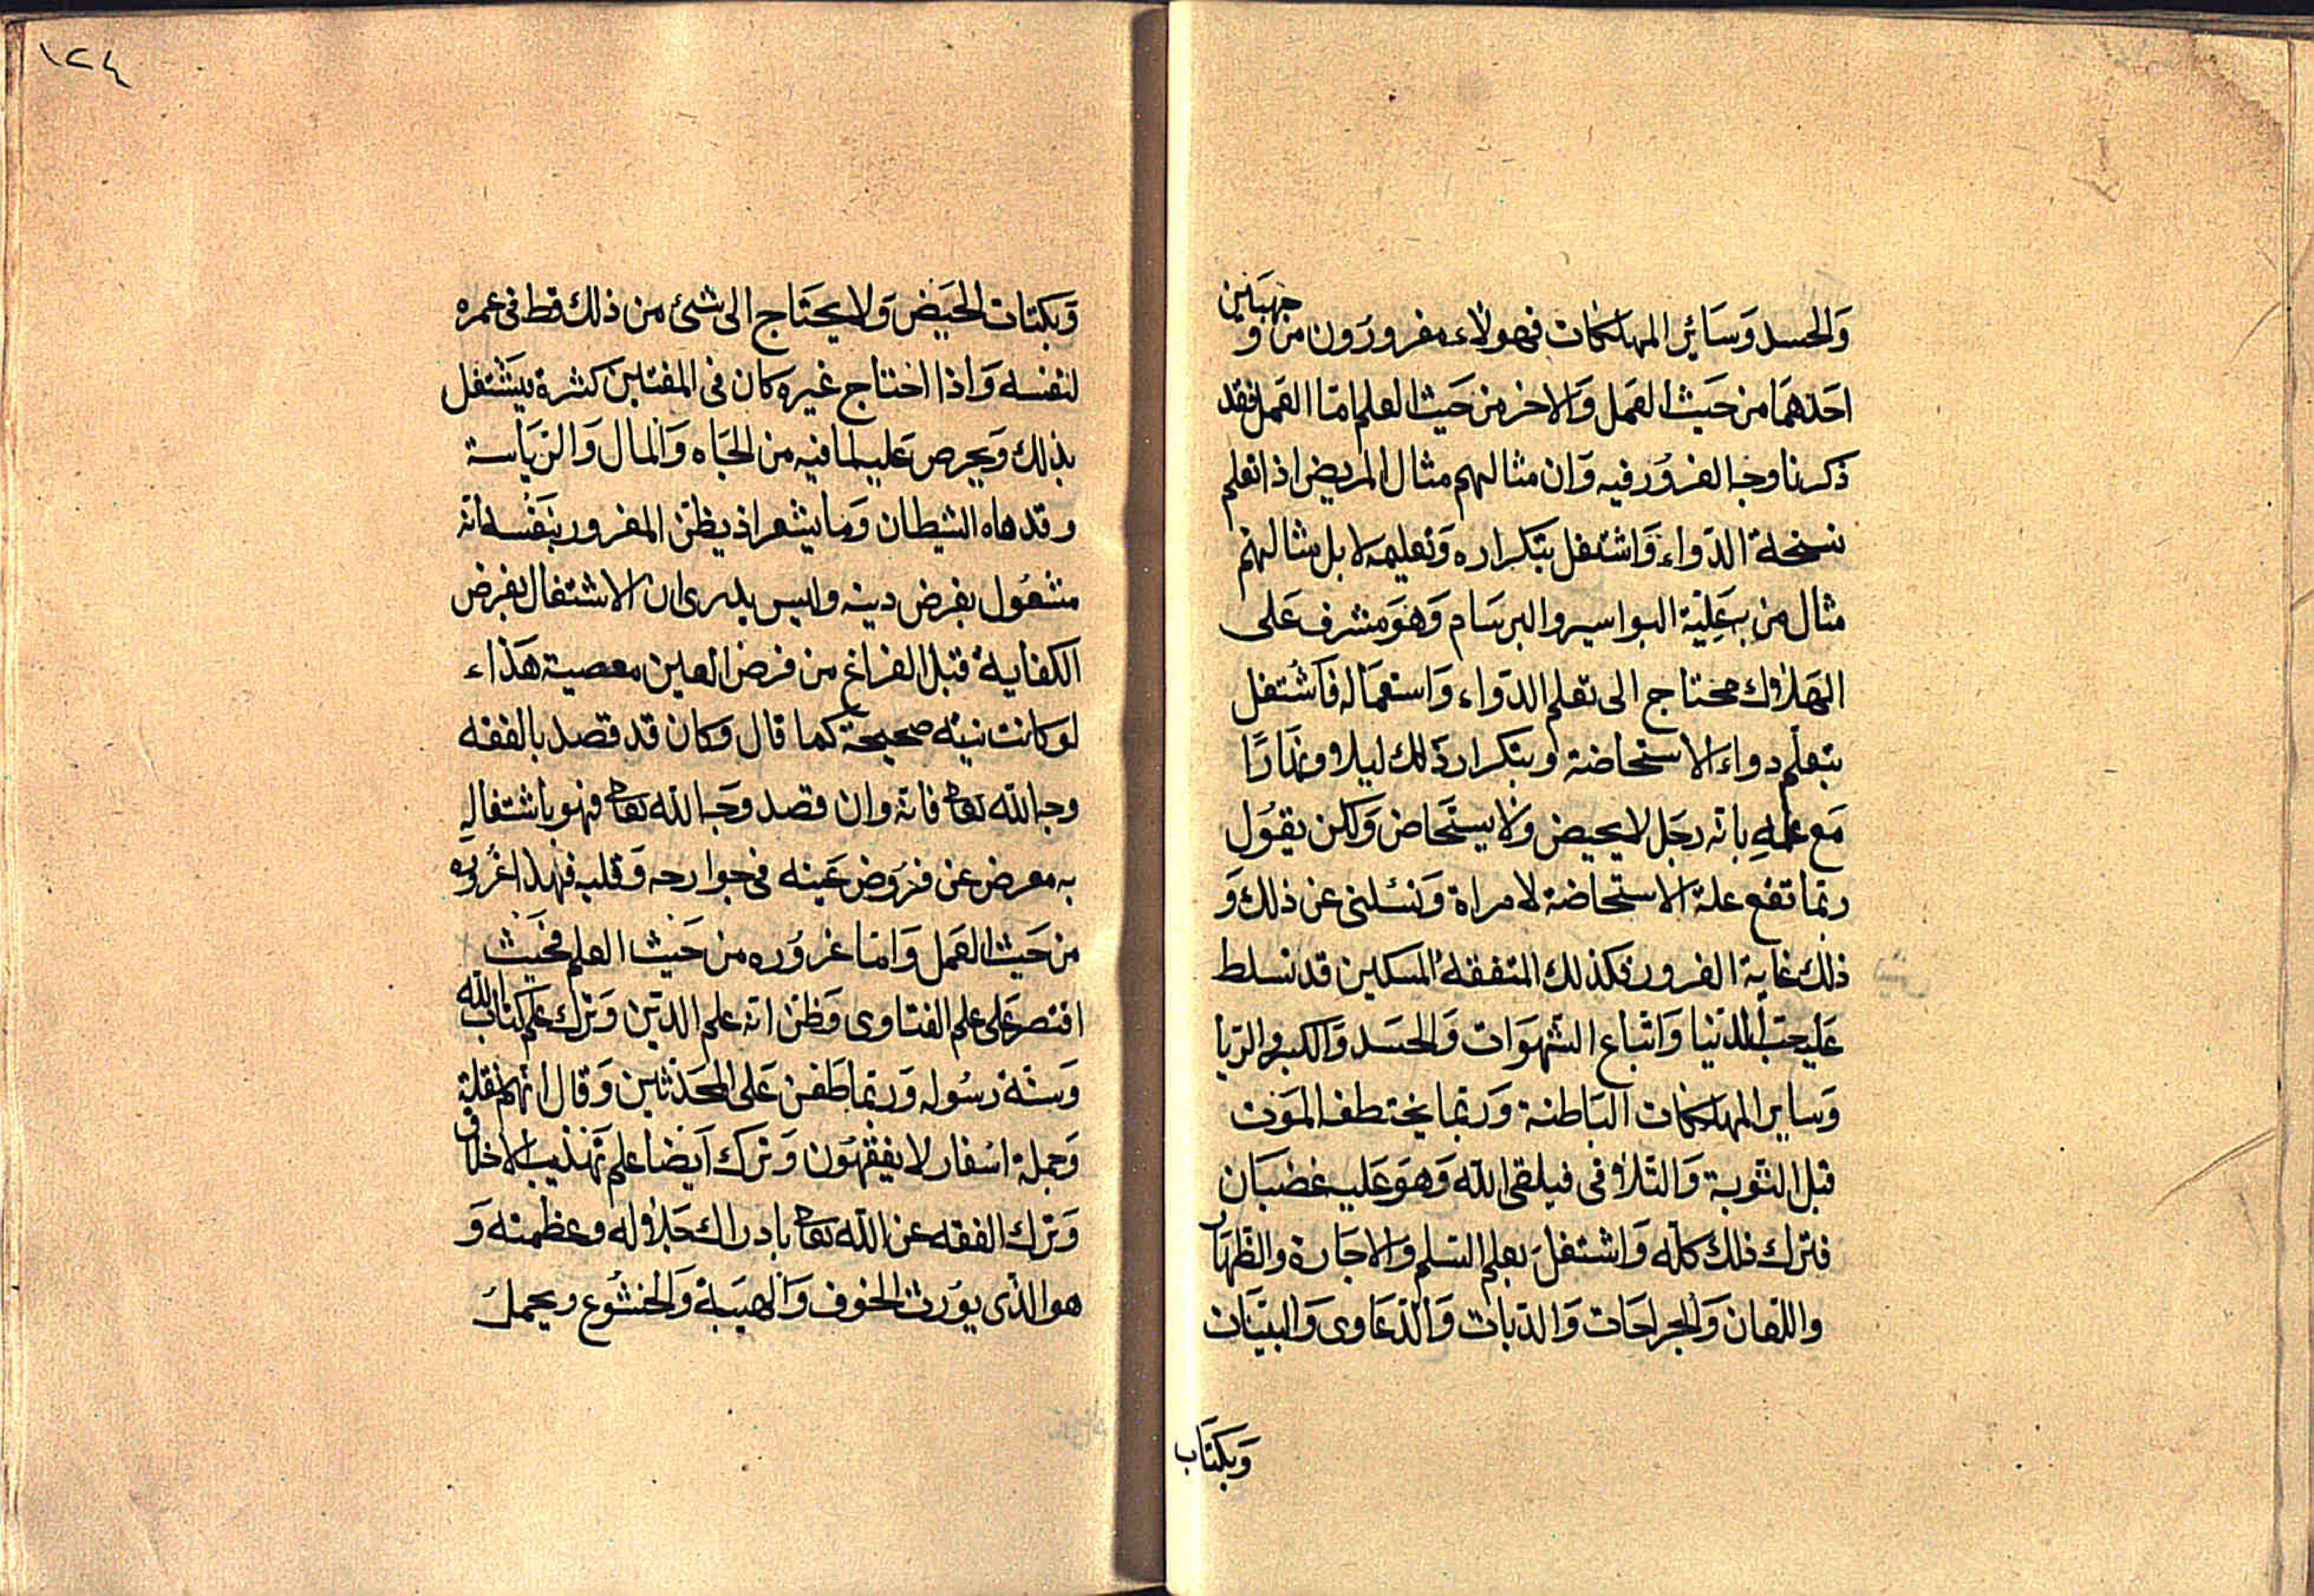 والحسد وسائر المهلكات فهولاء مغرورون من وجهين
احدهما من حيث العمل والاخر من حيث العلم اما العمل فقد
ذكرنا وجه الغرور فيه وان مثالهم مثال المريض اذا تعلم
نسخة الدواء واشتغل بتكراره وتعليمه لا بل مثالهم
مثال من به علية البواسير والبرسام وهو مشرف على
الهلاك محتاج الى تعلم الدواء واستعماله فاشتغل
بتعلم دواء الاستحاضة وبتكرار ذلك ليلا ونهارًا
مع علمه بانه رجل لا يحيض ولا يستحاض ولكن يقول
ربما تقع علة الاستحاضة لامراة وتسئلنى عن ذلك و
ذلك غاية الغرور فكذلك المتفقه المسكين قد تسلط
عليه حب الدنيا واتباع الشهوات والحسد والكبر والريا
وساير المهلكات الباطنة وربما يختطفه الموت
قبل التوبة والتلافى فيلقى الله وهو عليه غضبان
فترك ذلك كله واشتغل بعلم السلم والاجارة والظهار
واللعان والجراحات والديات والدعاوى والبينات
وبكتاب
١٢٤
وبكتاب الحيض ولا يحتاج الى شئ من ذلك قط فى عمره
لنفسه واذا احتاج غيره كان فى المفتين كثرة فيشتغل
بذلك ويحرص عليه لما فيه من الجاه والمال والرياسة
وقد دهاه الشيطان وما يشعر اذ يظن المغرور بنفسه انه
مشغول بفرض دينه وليس يدرى ان الاشتغال بفرض
الكفاية قبل الفراغ من فرض العين معصية هذاء
لو كانت نيته صحيحة كما قال وكان قد قصد بالفقه
وجه الله تعا فانه وان قصد وجه الله تعا فهو باشتغاله
به معرض عن فروض عينه فى جوارحه وقلبه فهذا غروره
من حيث العمل واما غروره من حيث العلم فحيث
اقتصر على علم الفتاوى وظن انه علم الدين وترك علم كتاب الله
وسنة رسوله وربما طعن على المحدثين وقال انهم نقلة
وحملة اسفار لا يفقهون وترك ايضا علم تهذيب الاخلاق
وترك الفقه عن الله تعا بادراك جلاله وعظمته و
هو الذى يورث الخوف والهيبة والخشوع ويحمل